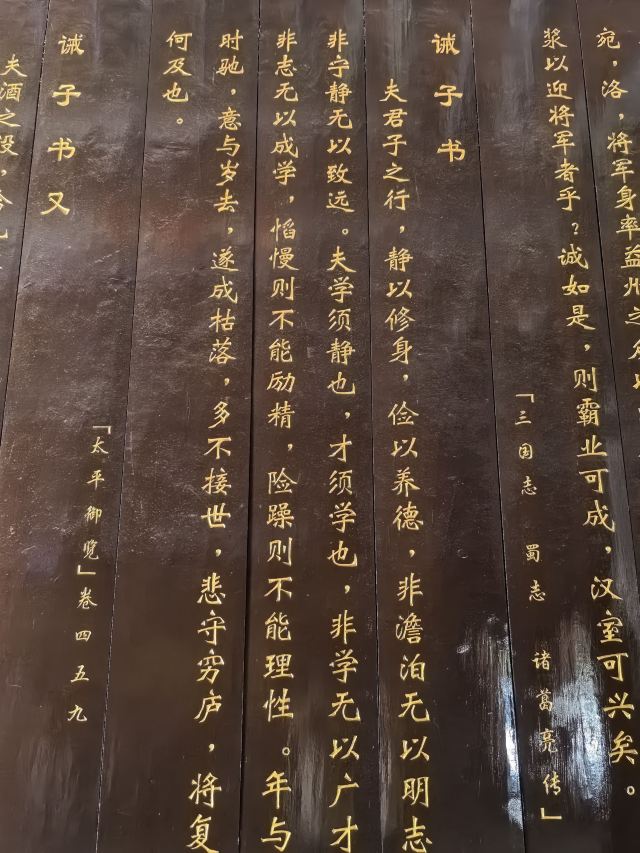 宛，洛，将军身率益州之众以
浆以迎将军者乎？诚如是，则霸业可成，汉室可兴矣。
「三国志 蜀志 诸葛亮传」
诫子书
夫君子之行，静以修身，俭以养德，非澹泊无以明志
非宁静无以致远。夫学须静也，才须学也，非学无以广才
非志无以成学，慆慢则不能励精，险躁则不能理性。年与
时驰，意与岁去，遂成枯落，多不接世，悲守穷庐，将复
何及也。
「太平御览」卷四五九
诫子书又
夫酒之设，合礼